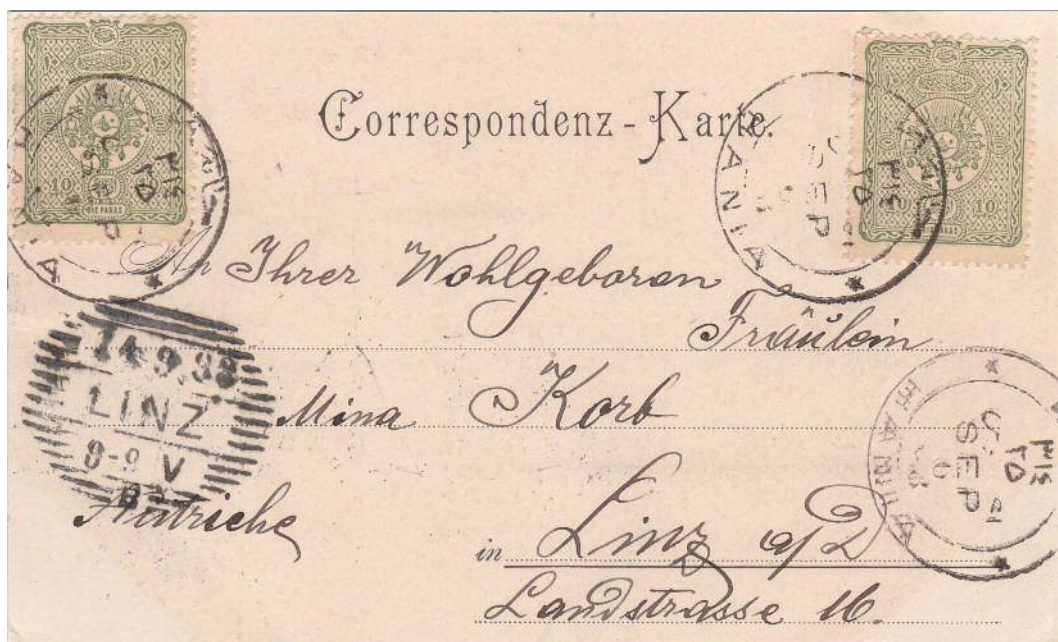 Correspondenz-Karte.
10 10
DIX PARAS
10 10
An Ihrer Wohlgeboren
Fräulein
Mina Korb
SEP
SEP
SEP
LINZ
8-9 V
Autriche
in Linz a/D
Landstrasse 16.